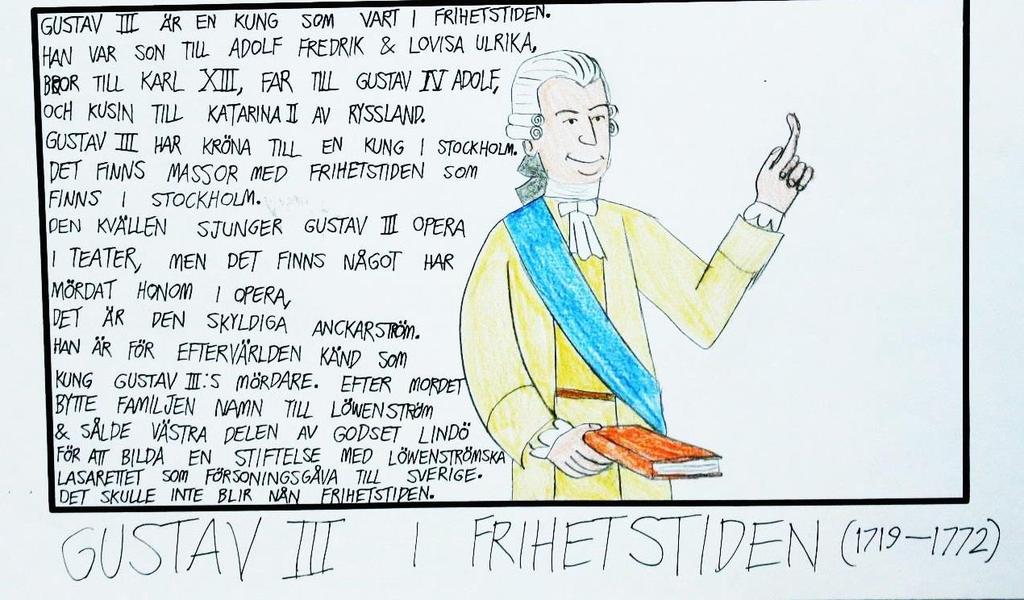 GUSTAV III ÄR EN KUNG SOM VART I FRIHETSTIDEN.
HAN VAR SON TILL ADOLF FREDRIK & LOVISA ULRIKA,
BROR TILL KARL XIII, FAR TILL GUSTAV IV ADOLF,
OCH KUSIN TILL KATARINA II AV RYSSLAND.
GUSTAV III HAR KRÖNA TILL EN KUNG I STOCKHOLM.
DET FINNS MASSOR MED FRIHETSTIDEN SOM
FINNS I STOCKHOLM.
DEN KVÄLLEN SJUNGER GUSTAV III OPERA
I TEATER, MEN DET FINNS NÅGOT HAR
MÖRDAT HONOM I OPERA,
DET ÄR DEN SKYLDIGA ANCKARSTRÖM.
HAN ÄR FÖR EFTERVÄRLDEN KÄND SOM
KUNG GUSTAV III:S MÖRDARE. EFTER MORDET
BYTTE FAMILJEN NAMN TILL LÖWENSTRÖM
& SÅLDE VÄSTRA DELEN AV GODSET LINDÖ
FÖR ATT BILDA EN STIFTELSE MED LÖWENSTRÖMSKA
LASARETTET SOM FÖRSONINGSGÅVA TILL SVERIGE.
DET SKULLE INTE BLIR NÅN FRIHETSTIDEN.
GUSTAV III I FRIHETSTIDEN (1719–1772)